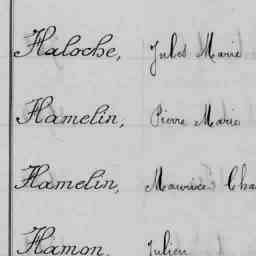 Haloche, Jules Marie
Hamelin, Pierre Marie
Hamelin, Maurice Cha
Hamon, Julien